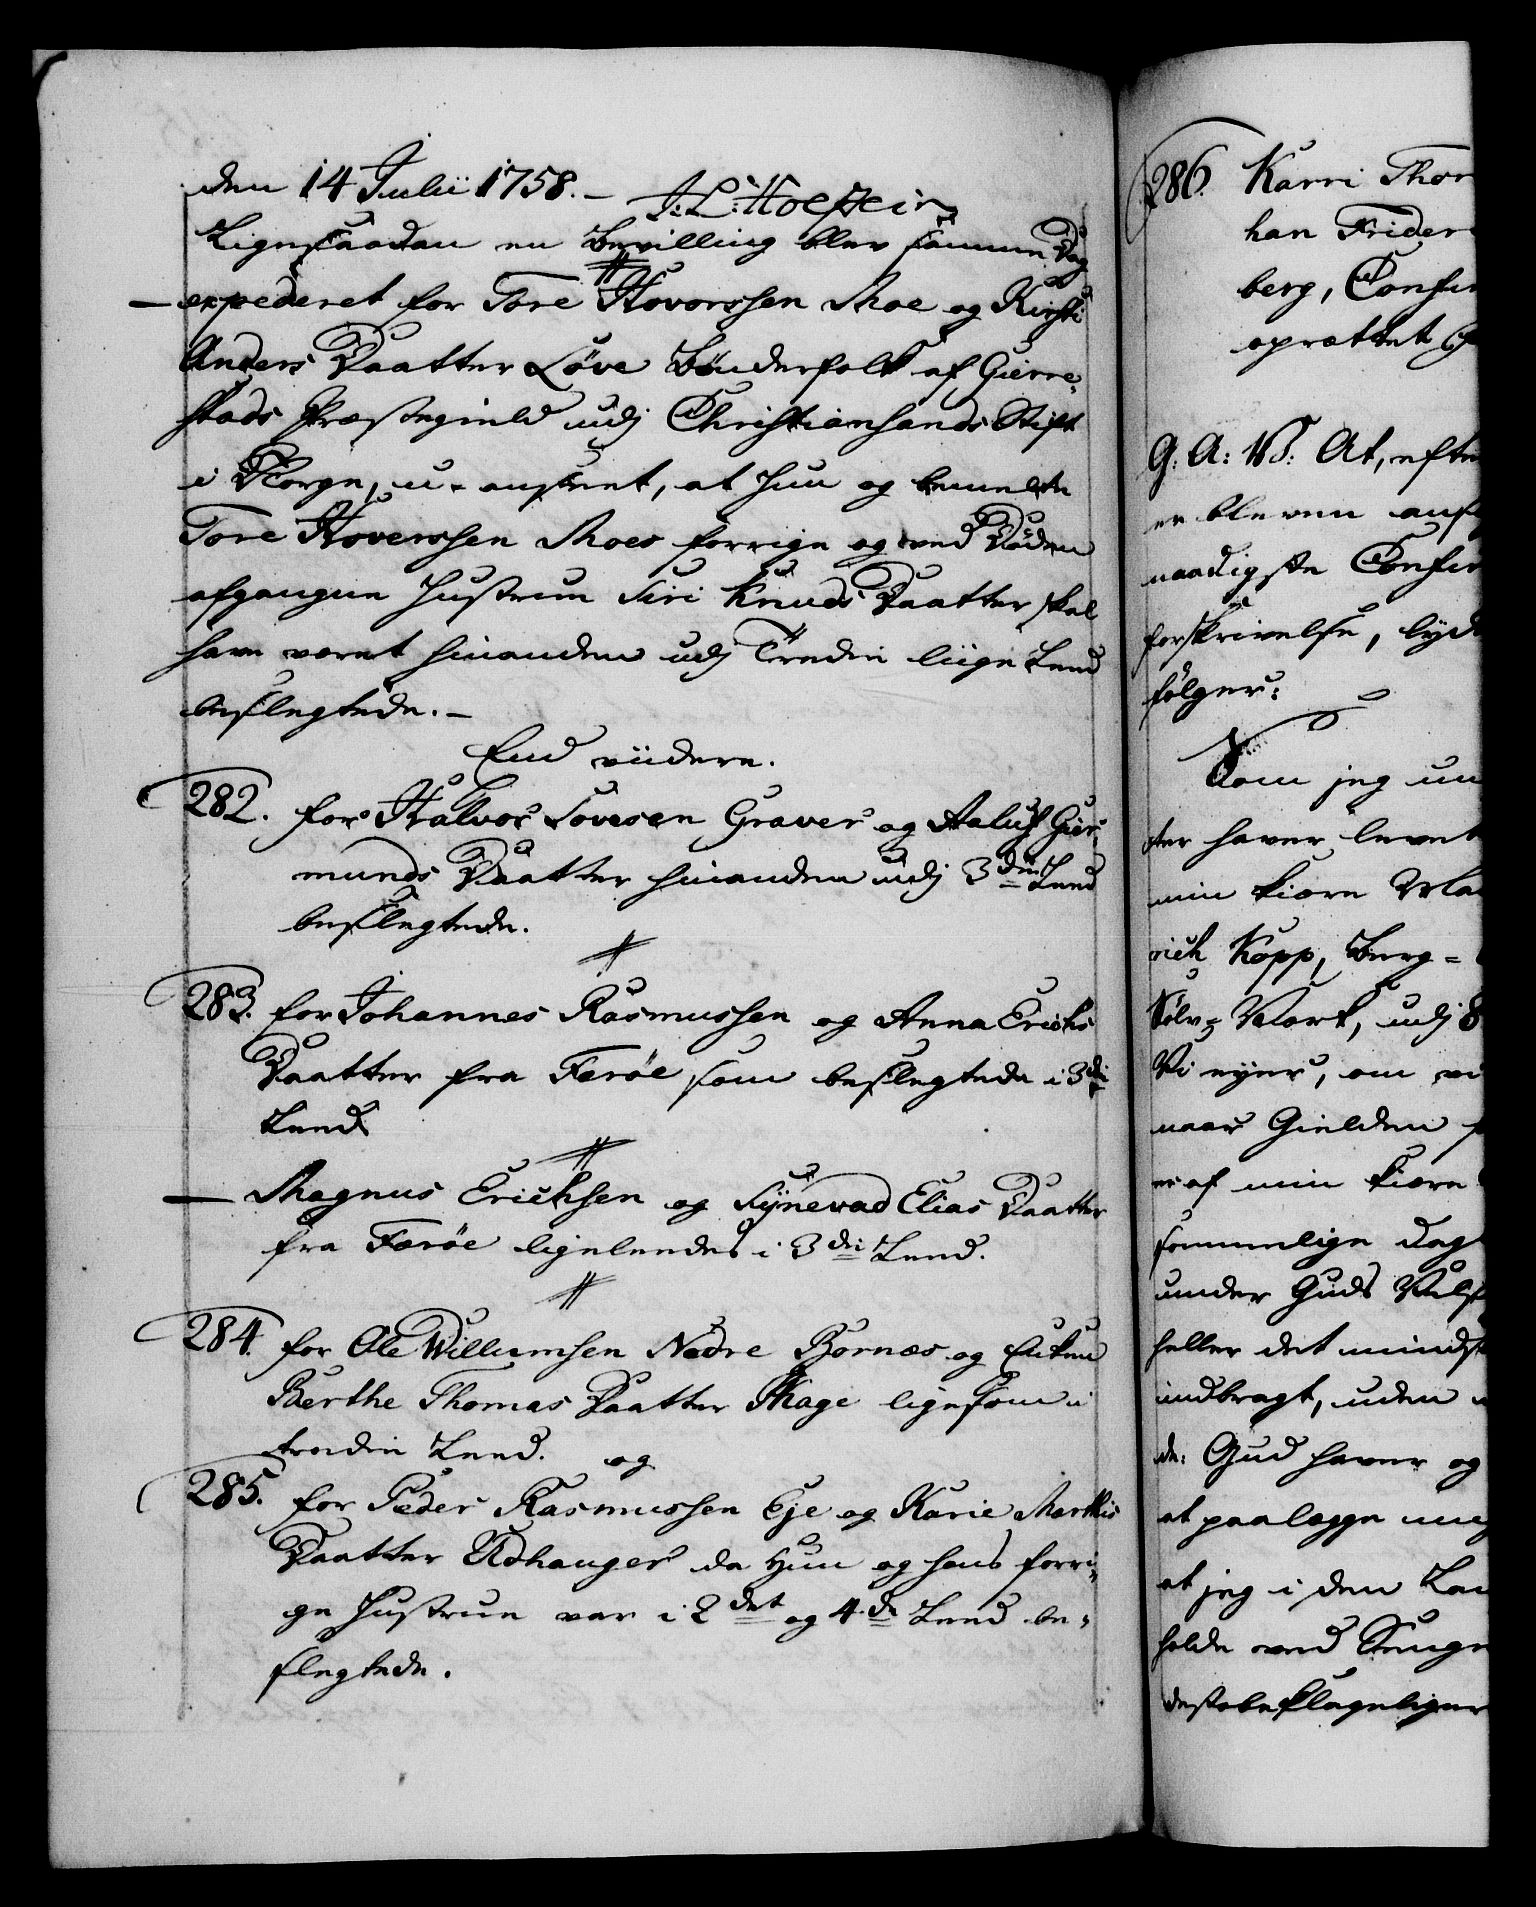 den 14 Julii 1758. –
J: L: Holstein
Ligesaadan en Bevilling blev samme Dag
expederet for Tore Hovorssen Moe og Kirsti
Anders Daatter Löve Bönderfolk af Gierre-
stads Præstegield udj Christiansands Stift
i Norge, u-anseet, at hun og bemelte
Tore Hoverssen Moes forrige og ved Döden
afgangne Hustrue Siri Knuds Daatter skal
have været hinanden udj Tredie liige Leed
beslegtede. –
End viidere.
282. for Halvor Tovesen Graver og Aaluf Gier-
munds Daatter hinanden udj 3die Leed
beslegtede.
283. for Johannes Rasmussen og Anna Erichs
Daatter fra Feröe som beslegtede i 3die
Leed
– Magnus Erichsen og Synevad Elias Daatter
fra Færöe ligeledes i 3die Leed.
284. for Ole Willumsen Nedre Bornæs og Enken
Berthe Thomas Daatter Hage ligesom i
tredie Leed. og
285. for Peder Rasmussen Eje og Karie Mathis
Daatter Udhauger da hun og hans forri-
ge Hustrue var i 2det og 4de Leed be-
slegtede.
286. Karri Thor
han Frider
berg, Confir
oprættet
G: A: V: At, efter
er bleven ans
naadigste Confir
forskrivelse, lyd
fölger:
Som jeg un
ter haver levet
min kiære Ma
rich Kopp, Berg-
Sölv-Værk, udj 8
Vi eyer, om vi
naar Gielden
er af min kiære
sommelige Dag
under Guds Vels
heller det mindst
indbragt, uden
de: Gud haver og
at paalægge mig
at jeg i den
holde ved Senge
desto beklageliger